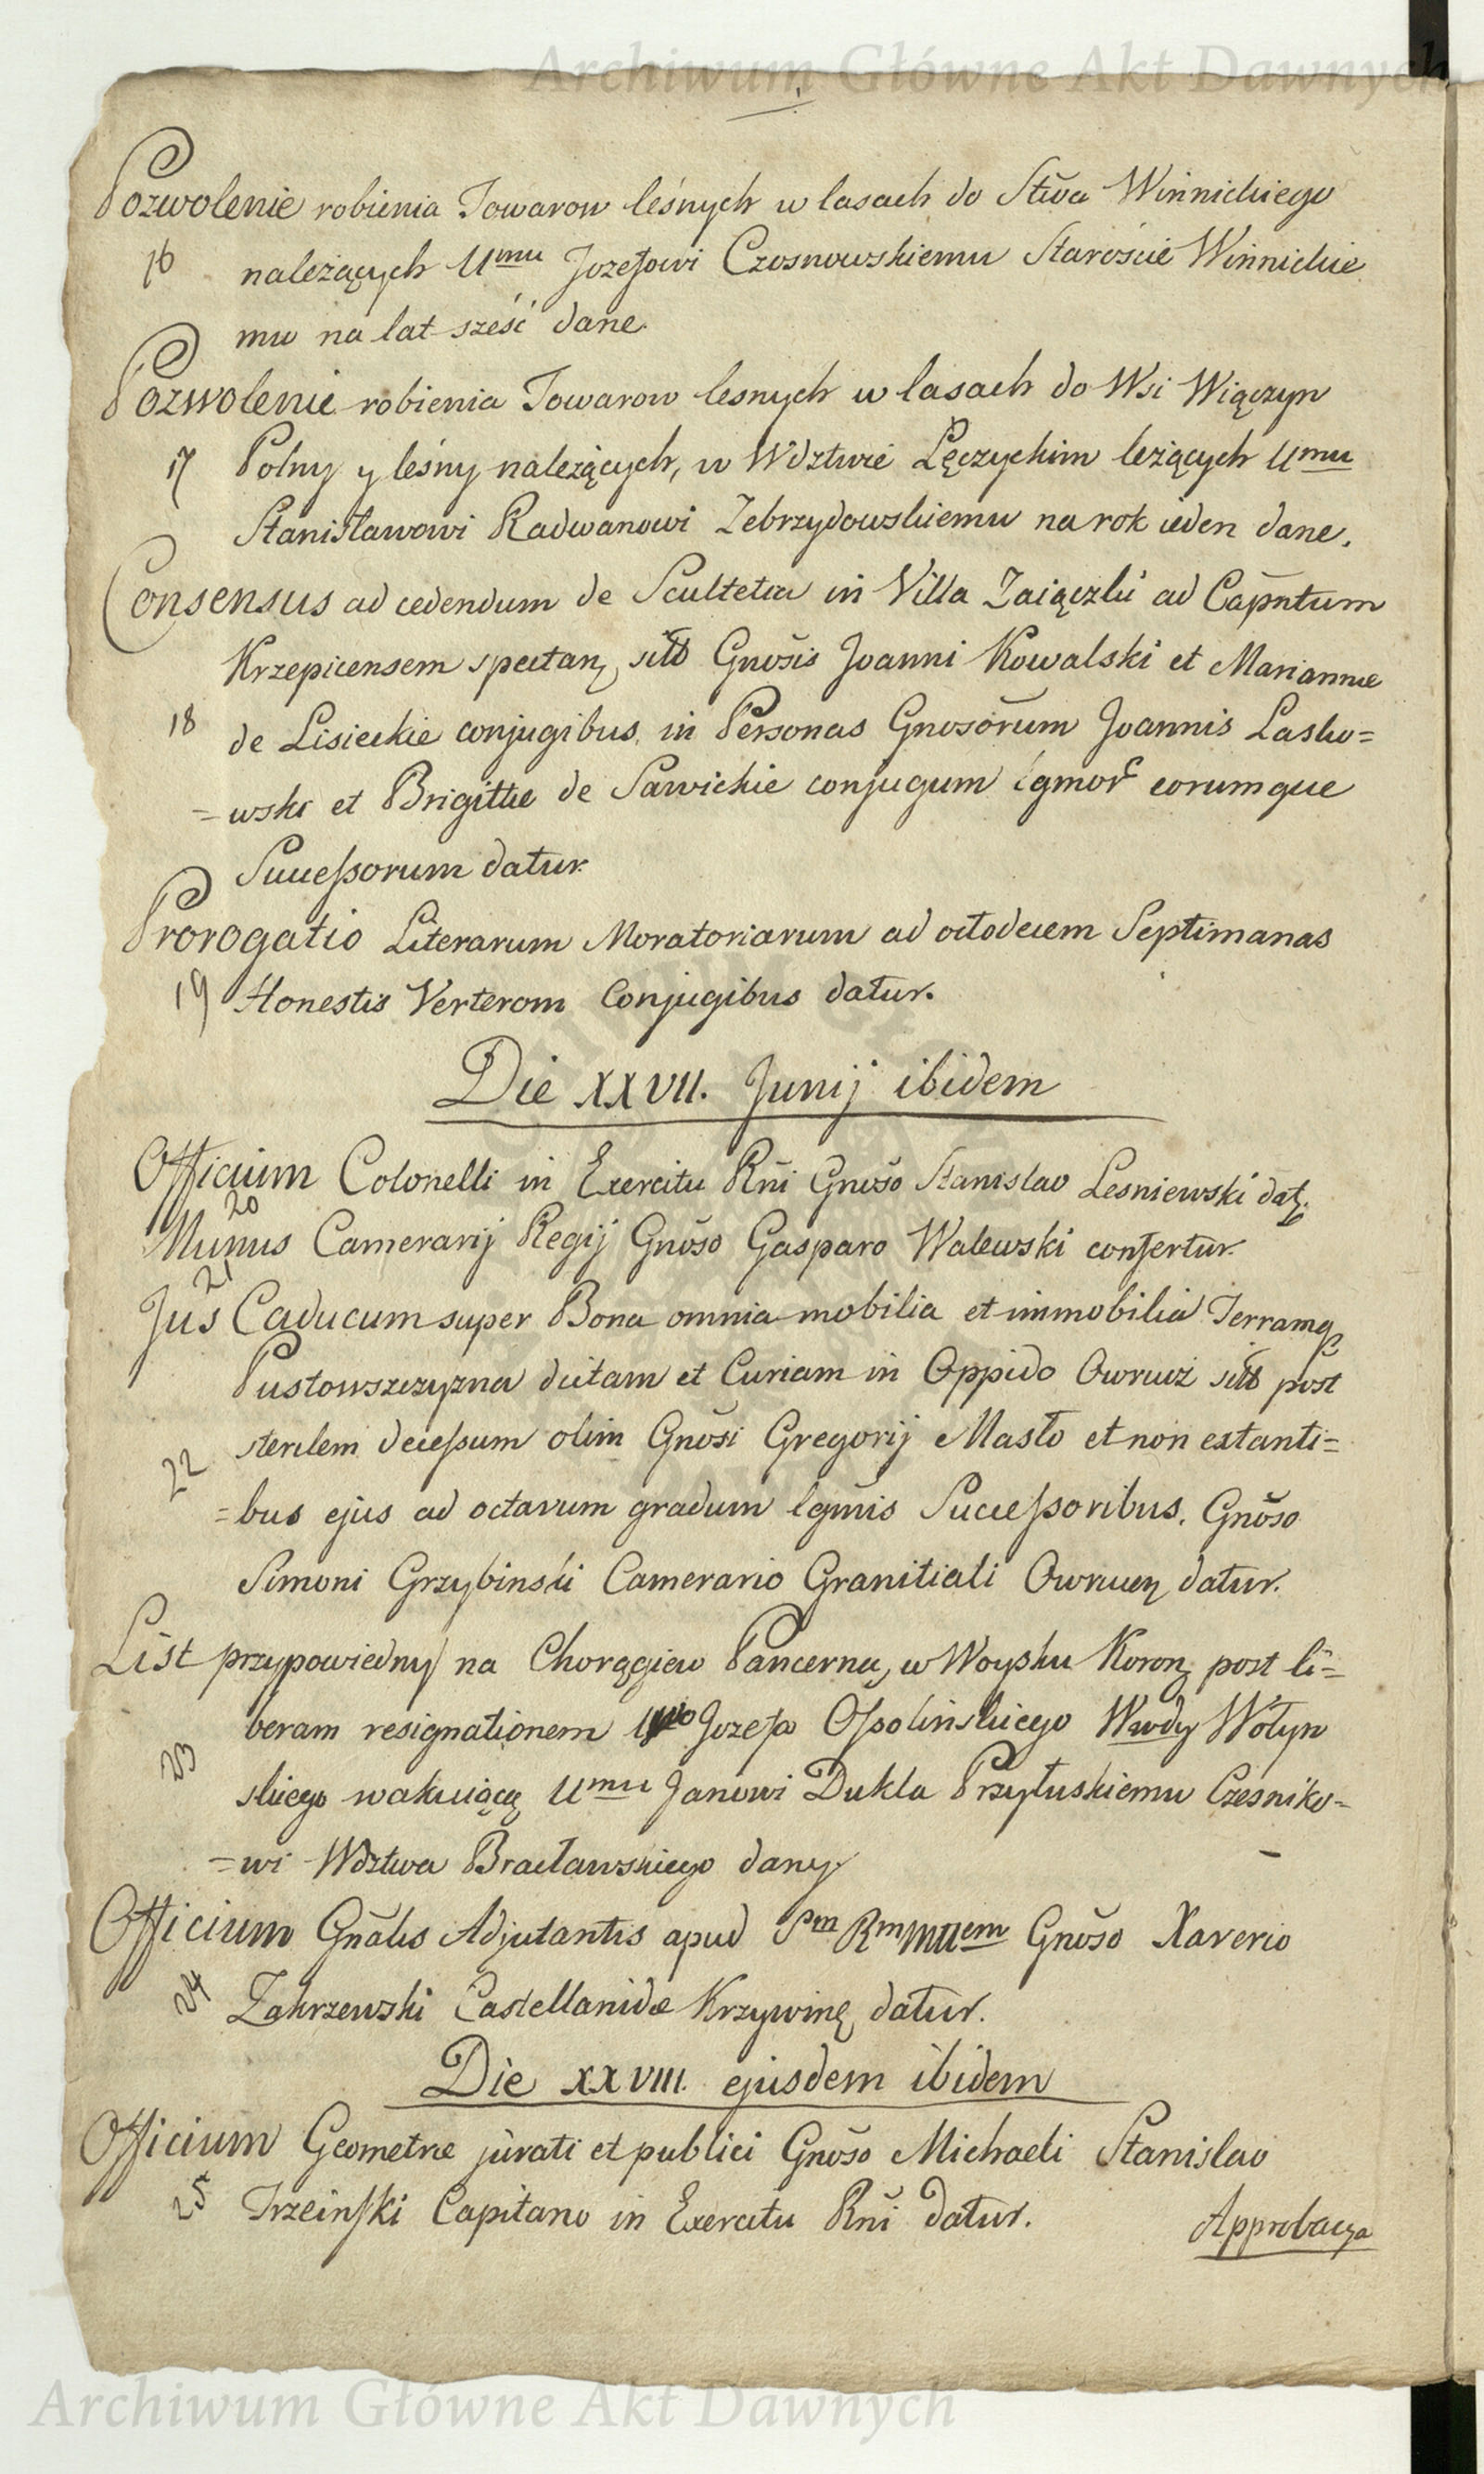 Archiwum Główne Akt Dawnych
Pozwolenie robienia Towarow leśnych w lasach do Stwa Winnickiego
16 należących Umu Jozefowi Czosnowskiemu Staroście Winnickie
mu na lat sześć dane.
Pozwolenie robienia Towarow lesnych w lasach do Wsi Wiączyn
17 Polny y leśny należących, w Wdztwie Łęczyckim leżących Umu
Stanisławowi Radwanowi Zebrzydowskiemu na rok ieden dane.
Consensus ad cedendum de Scultetia in Villa Zaiączki ad Capntum
Krzepicensem spectan, sitt Gnosis Joanni Kowalski et Mariannæ
18 de Lisieckie conjugibus, in Personas Gnosorum Joannis Lasko=
=wski et Brigittæ de Sawickie conjugum lgmor eorumque
Successorum datur.
Prorogatio Literarum Moratoriarum ad octodecem Septimanas
19 Honestis Verterom Conjugibus datur.
Die XXVII. Junij ibidem
Officium Colonelli in Exercitu Rni Gnoso Stanislao Lesniewski dat.
20
Munus Camerarij Regij Gnoso Gasparo Walewski confertur.
21
Jus Caducum super Bona omnia mobilia et immobilia Terramq
Pustowszczyzna dictam et Curiam in Oppido Owrucz sitt post
22 sterilem decessum olim Gnosi Gregorij Masło et non extanti=
=bus ejus ad octavum gradum lgmis Successoribus, Gnoso
Simoni Grzybinski Camerario Granitiali Owrucen datur.
List przypowiedny na Chorągiew Pancerną w Woysku Koron post li=
beram resignationem Jozefa Ossolinskiego Wwdy Wołyn
23 skiego wakuiącą Umu Janowi Dukla Przyłuskiemu Czesniko=
=wi Wdztwa Bracławskiego dany
Officium Gnalis Adjutantis apud Sm Rm Mttem Gnoso Xaverio
24 Zakrzewski Castellanidæ Krzywin datur.
Die XXVIII. ejusdem ibidem
Officium Geometræ jurati et publici Gnoso Michaeli Stanislao
25 Trzcinski Capitano in Exercitu Rni datur.
Approbacya
Archiwum Główne Akt Dawnych